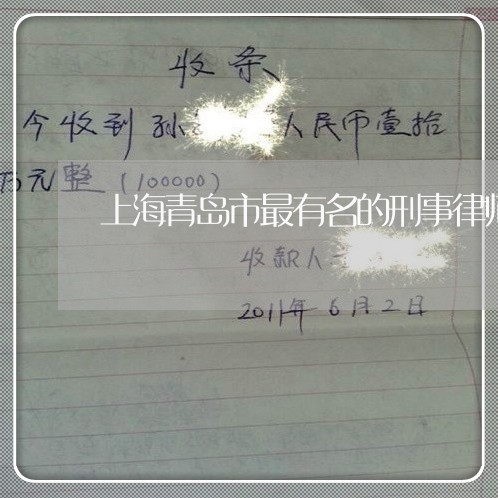 收条
今收到孙 人民币壹拾
万元整(100000)
上海青岛市最有名的刑事律师
收款人
2011年6月2日